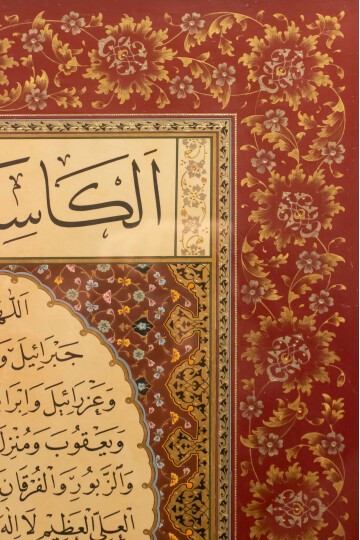 اَلْكَاسِ
اَللّٰه
جَبْرَائِيلَ وَ
وَعِزْرَائِيلَ وَاِبْرَا
وَيَعْقُوبَ وَمُنْزِلَ
وَالزَّبُورِ وَالْفُرْقَانِ
الْعَلِيِّ الْعَظِيمِ لَا اِلٰهَ